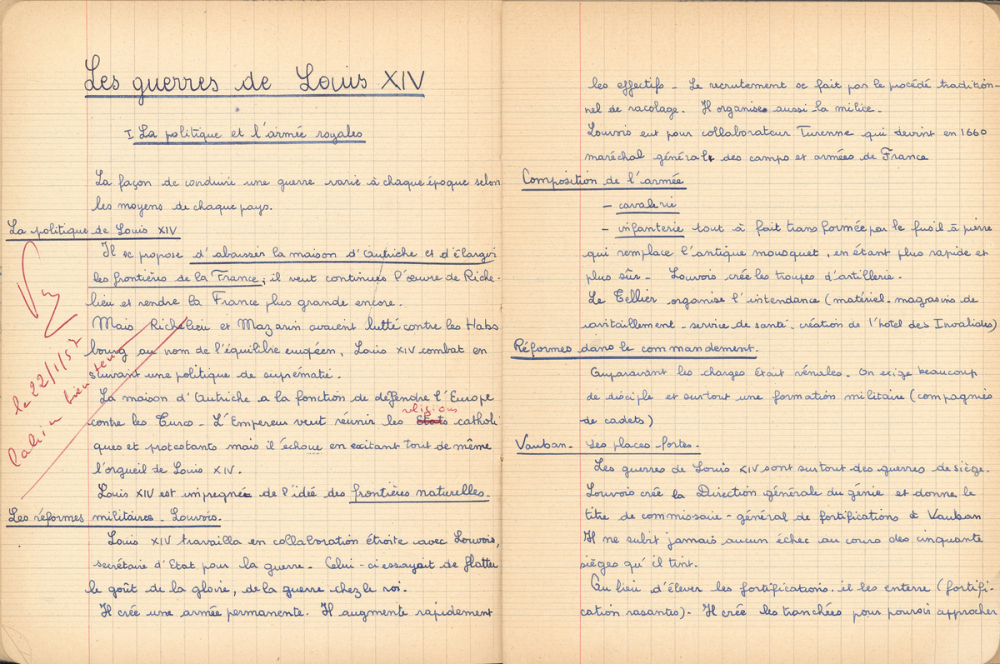 Les guerres de Louis XIV
I. La politique et l'armée royales
La façon de conduire une guerre varie à chaque époque selon
les moyens de chaque pays.
La politique de Louis XIV
Il se propose d'abaisser la maison d'Autriche et d'élargir
les frontières de la France, il veut continuer l'œuvre de Riche-
lieu et rendre la France plus grande encore.
Mais Richelieu et Mazarin avaient lutté contre les Habs
bourg au nom de l'équilibre eugéen, Louis XIV combat en
suivant une politique de suprématie.
La maison d'Autriche a la fonction de défendre l'Europe
religions
contre les Turcs. L'Empereur veut réunir les Etats catholi
ques et protestants mais il échoue en exitant tout de même
l'orgueil de Louis XIV.
Louis XIV est impregnée de l'idée des frontières naturelles.
Les réformes militaires. Louvois.
Louis XIV travailla en collaboration étroite avec Louvois,
secrétaire d'Etat pour la guerre. Celui-ci essayait de flatter
le goût de la gloire, de la guerre chez le roi.
Il crée une armée permanente. Il augmente rapidement
Vu
le 22/1/57
Cahier bien tenu
les effectifs. Le recrutement se fait par le procédé tradition-
nel de racolage. Il organise aussi la milice.
Louvois eut pour collaborateur Turenne qui devint en 1660
maréchal général des camps et armées de France
Composition de l'armée
- cavalerie
- infanterie tout à fait transformée par le fusil à pierre
qui remplace l'antique mousquet, en étant plus rapide et
plus sûr. Louvois crée les troupes d'artillerie.
Le Tellier organise l'intendance (matériel. magasins de
ravitaillement - service de santé. création de l'hôtel des Invalides)
Réformes dans le commandement.
Auparavant les charges était vénales. On exige beaucoup
de disciple et surtout une formation militaire (compagnies
de cadets)
Vauban. Les places-fortes.
Les guerres de Louis XIV sont surtout des guerres de siège.
Louvois crée la Direction générale du génie et donne le
titre de commissaie-général de fortifications à Vauban
Il ne subit jamais aucun échec au cours des cinquante
sièges qu'il tint.
Au lieu d'élever les fortifications. il les enterre (fortifi-
cation rasantes). Il crée les tranchées pour pouvoir approcher